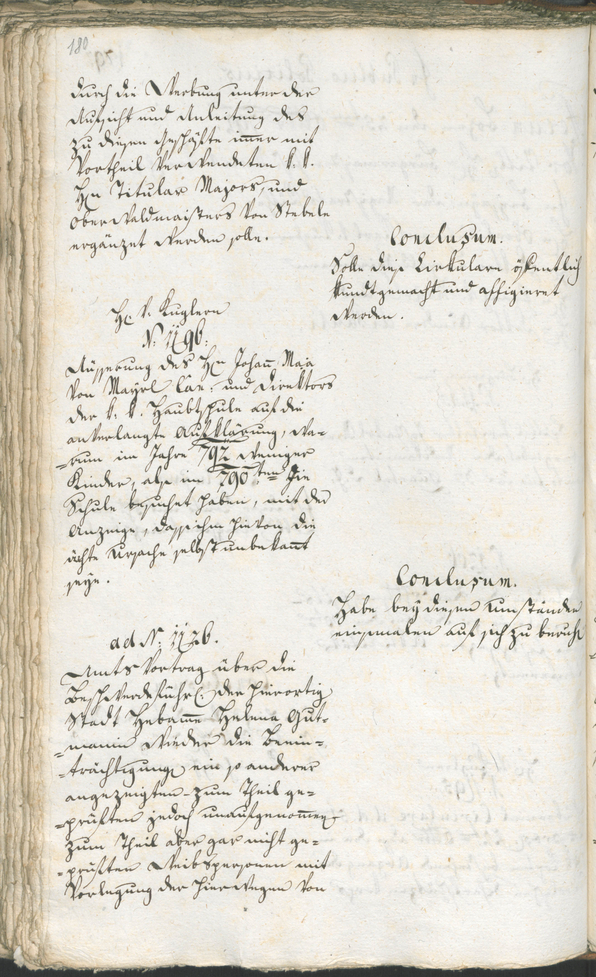 180
durch die Werbung unter der
Aufsicht und Anleitung des
zu diesem Geschäfte immer mit
Vortheil verwendeten k. k.
Hn Titular Majors, und
Oberwaldmaisters von Stebele
ergänzet werden solle.
Conclusum.
Solle diese Cirkulare öffentlich
kundtgemacht und affigieret
werden.
H. v. Kuglern
N: 1196.
Äusserung des Hn Johann Maja
von Mayrl Can: und Direktors
der k. k. Haubtschule auf die
anverlangte Aufklärung, wa-
-rum im Jahre 792 weniger
Kinder, als im 790ten die
Schule besuchet haben, mit der
Anzeige, dass ihm hievon die
ächte Ursache selbst unbekannt
seye.
Conclusum.
Habe bey diesen Umständen
einsmalen auf sich zu beruhen
ad N: 1126.
Amts Vortrag über die
Beschwerdeführ der hierortig
Stadt Hebamme Helena Gut-
-mann wieder die Beein-
-trächtigung ein so anderer
angezeigten zum Theil ge-
-prüften jedoch unaufgenommen
zum Theil aber gar nicht ge-
-prüften Weibspersonen mit
Vorlegung der hierwegen von